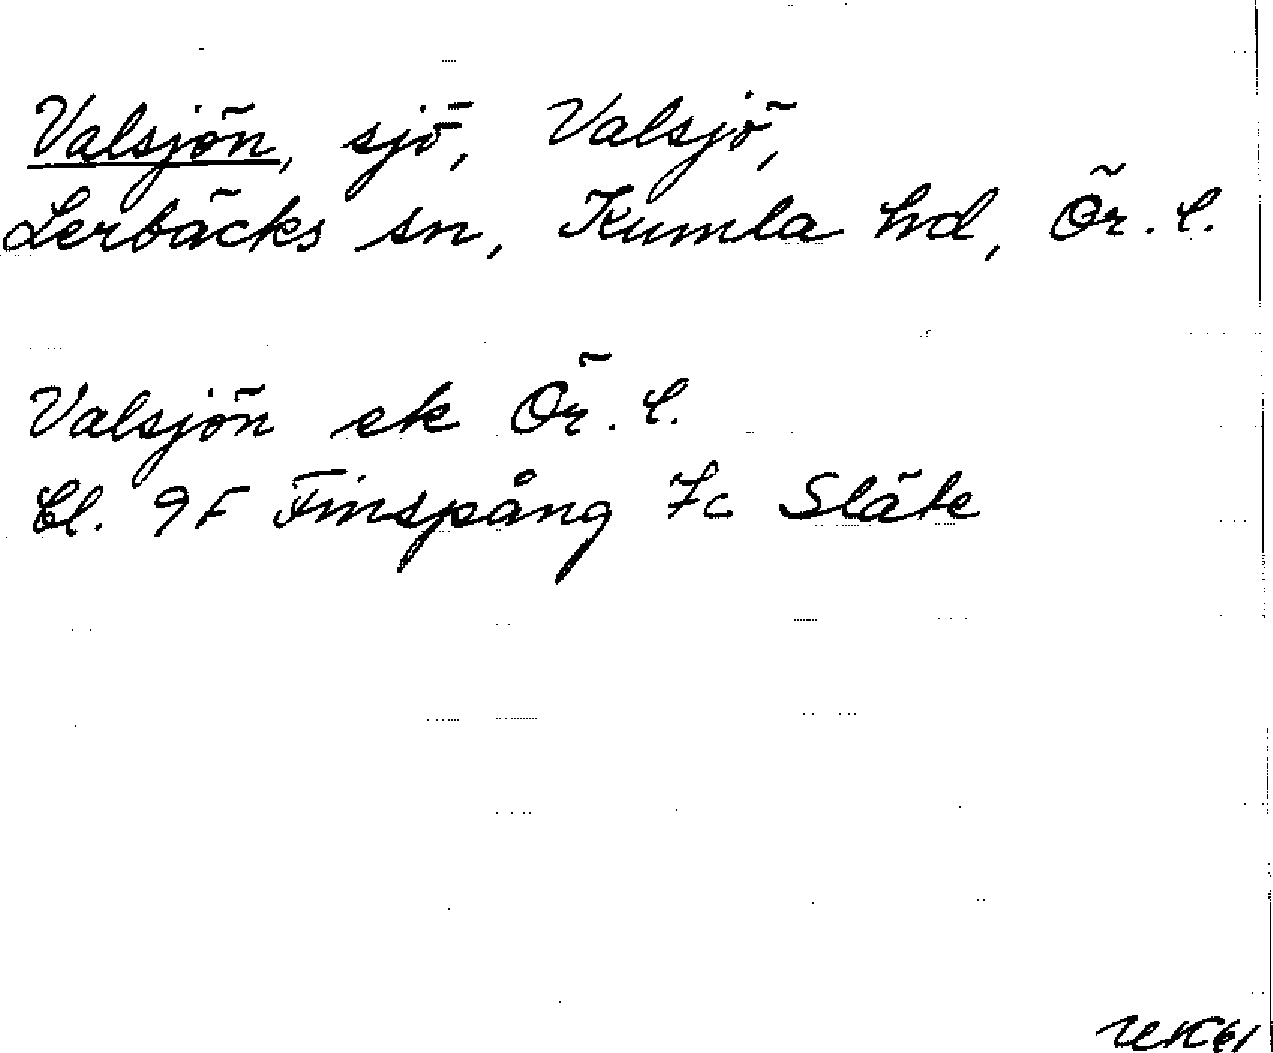 Valsjön, sjö, Valsjö,
Lerbäcks sn, Kumla hd, Ör. l.
Valsjön ek Ör. l.
Bl. 9F Finspång 7c Släte